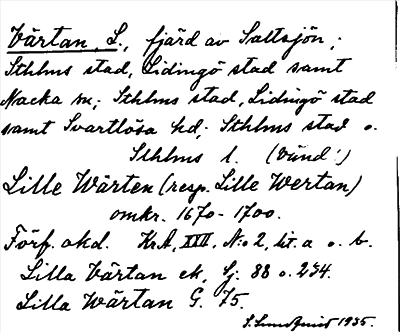 Värtan, L., fjärd av Saltsjön;
Sthlms stad, Lidingö stad samt
Nacka sn; Sthlms stad, Lidingö stad
samt Svartlösa hd; Sthlms stad o.
Sthlms l. (Vänd!)
Lille Wärten (resp. Lille Wertan)
omkr. 1670-1700.
Förf. okd. KrA, XIII, N:o 2, lit. a o. b.
Lilla Värtan ek, Sj. 88 o. 234.
Lilla Wärtan G. 75.
S. Lundquist 1935.